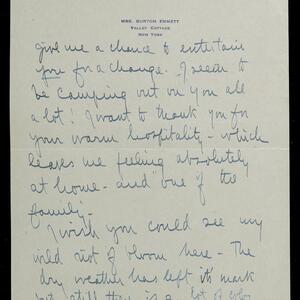 MRS. BURTON EMMETT
VALLEY COTTAGE
NEW YORK
give me a chance to entertain
you for a change. I seem to
be camping out on you all
a lot! I want to thank you for
your warm hospitality - which
leaves me feeling absolutely
at home - and "one of the
family."
I wish you could see my
wild riot of bloom here - The
dry weather has left it's mark
but still there is a lot of color